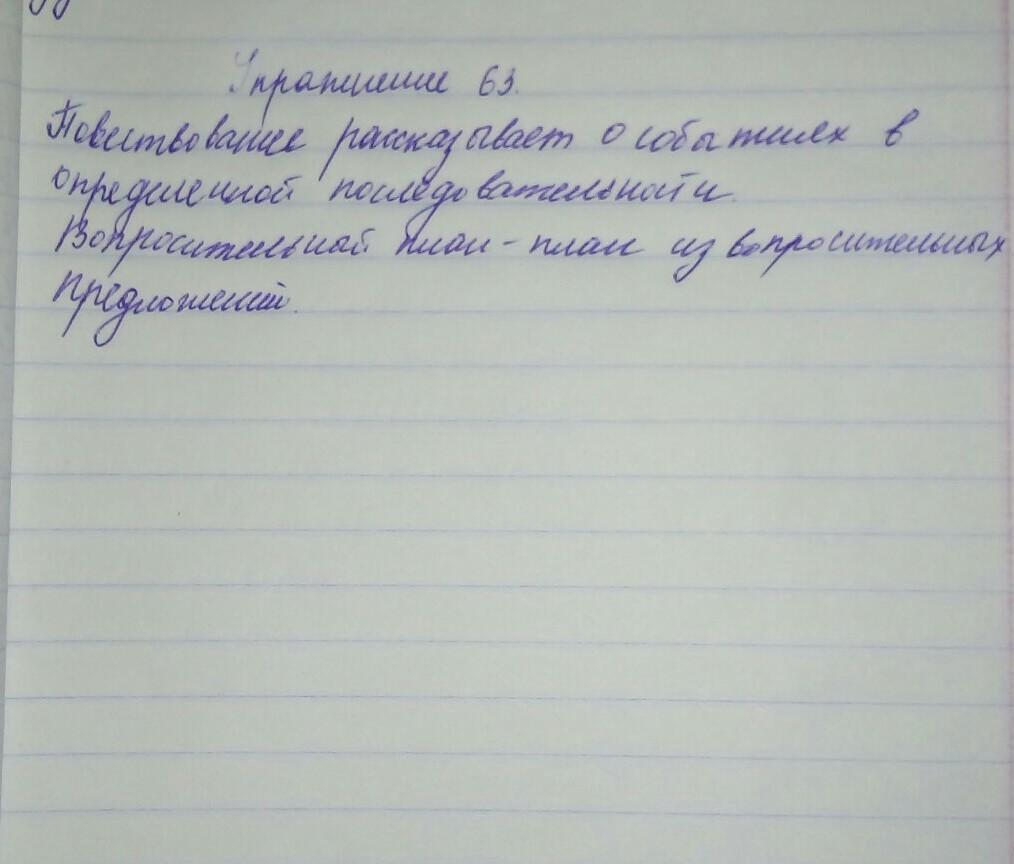 Упражнение 63.
Повествование рассказывает о событиях в
определенной последовательности.
Вопросительной план - план из вопросительных
предложений.